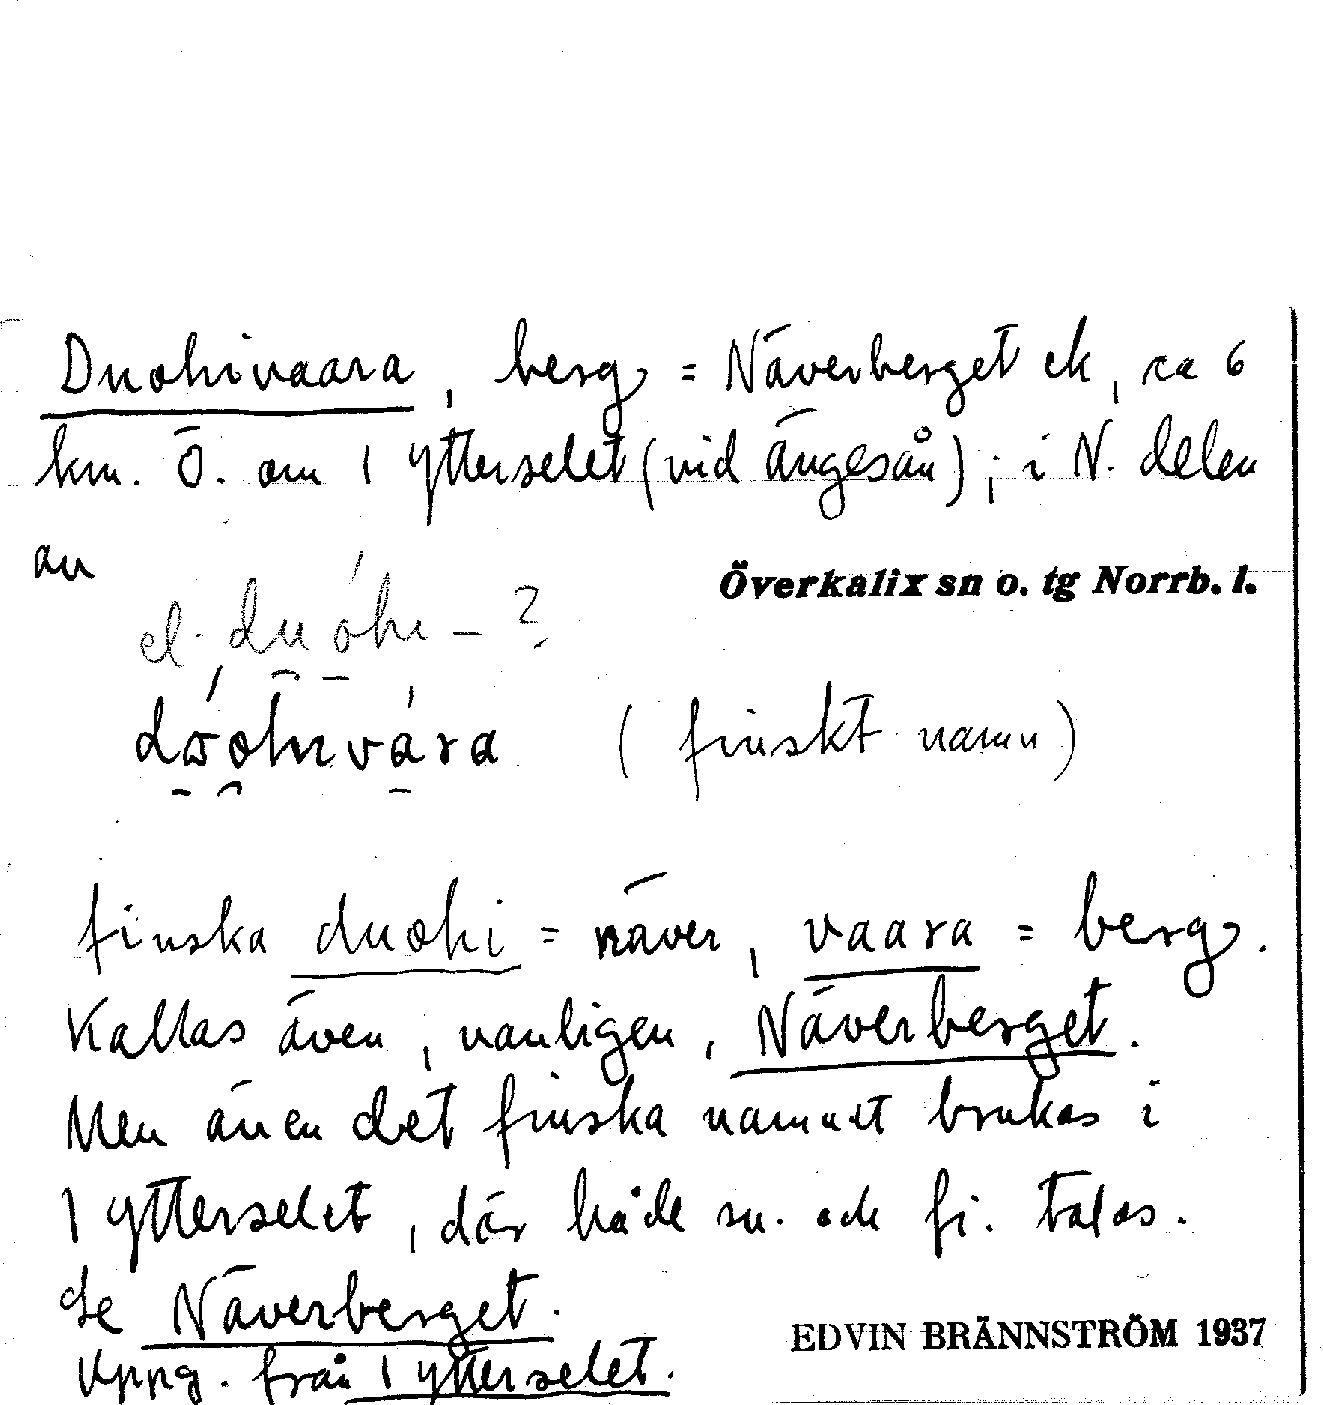 Duohivaara, berg = Näverberget ek, ca 6
km. Ö. om 1 Ytterselet (vid Ängesån); i N. delen
av
Överkalix sn o. tg Norrb. l.
el. duohi – ?
(finskt namn)
finska duohi = näver, vaara = berg.
Kallas även, vanligen, Näverberget.
Men även det finska namnet brukas i
1 Ytterselet, där både sv. och fi. talas.
Se Näverberget.
EDVIN BRÄNNSTRÖM 1937
Uppg. från 1 Ytterselet.